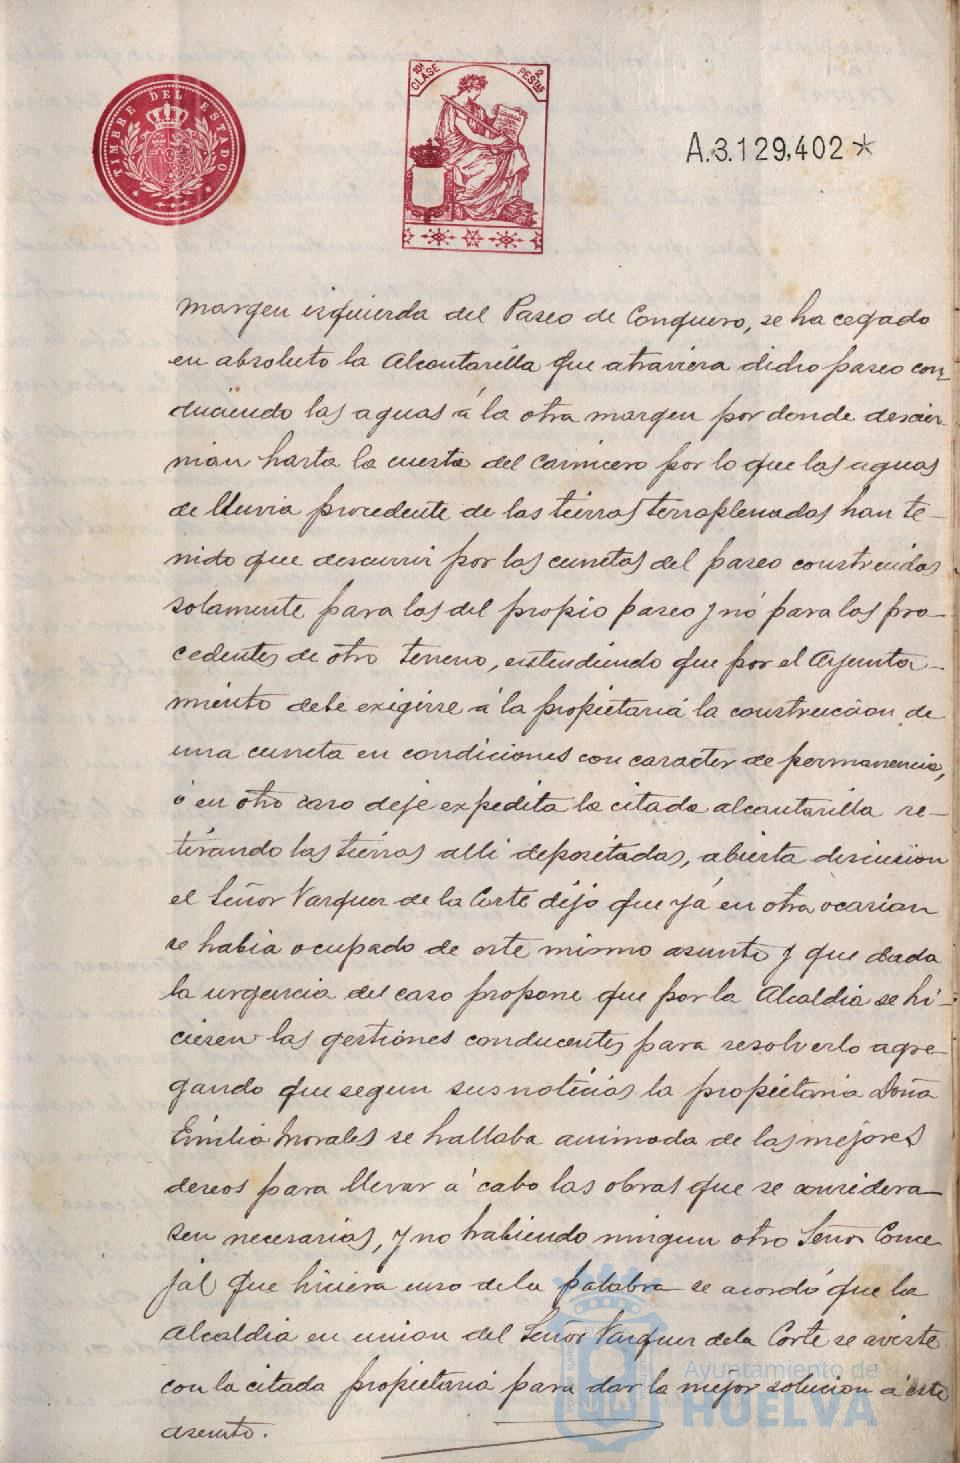 TIMBRE DEL ESTADO
10ª CLASE
2 PESTAS
A.3.129,402*
margen izquierda del Paseo de Conquero, se ha cegado
en absoluto la Alcantarilla que atraviesa dicho paseo con-
duciendo las aguas á la otra margen por donde descur-
rian hasta la cuesta del Carnicero por lo que las aguas
de lluvia procedente de las tierras terraplenadas han te-
nido que descurrir por las cunetas del paseo construidas
solamente para las del propio paseo y nó para las pro-
cedentes de otro terreno, entendiendo que por el Ayunta-
miento debe exigirse á la propietaria la construccion de
una cuneta en condiciones con caracter de permanencia,
ó en otro caso deje expedita la citada alcantarilla re-
tirando las tierras alli depositadas, abierta discusion
el Señor Vazquez de la Corte dijo que yá en otra ocasion
se habia ocupado de este mismo asunto y que dada
la urgencia del caso propone que por la Alcaldia se hi-
ciesen las gestiones conducentes para resolverlo agre-
gando que segun sus noticias la propietaria Doña
Emilia Morales se hallaba animada de las mejores
deseos para llevar á cabo las obras que se considera-
sen necesarias, y no habiendo ningun otro Señor Conce-
jal que hiciera uso de la palabra se acordó que la
Alcaldia en union del Señor Vazquez de la Corte se aviste
con la citada propietaria para dar la mejor solucion á este
asunto.
Ayuntamiento de
HUELVA